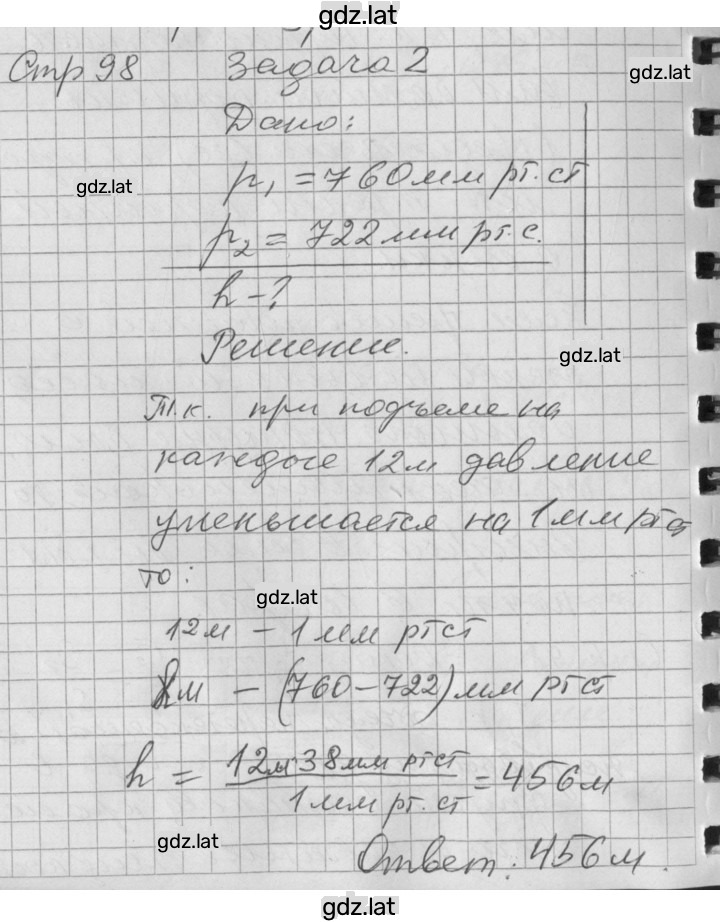 gdz.lat
Стр 98 Задача 2
gdz.lat
Дано:
gdz.lat
p₁ = 760 мм рт. ст
p₂ = 722 мм рт. с.
h - ?
Решение.
gdz.lat
Т.к. при подъеме на
каждые 12м давление
уменьшается на 1 мм рт ст
то:
gdz.lat
12м - 1 мм рт ст
м - (760-722) мм рт ст
h = 12м·38мм рт ст / 1мм рт. ст = 456м
gdz.lat
Ответ: 456 м.
gdz.lat